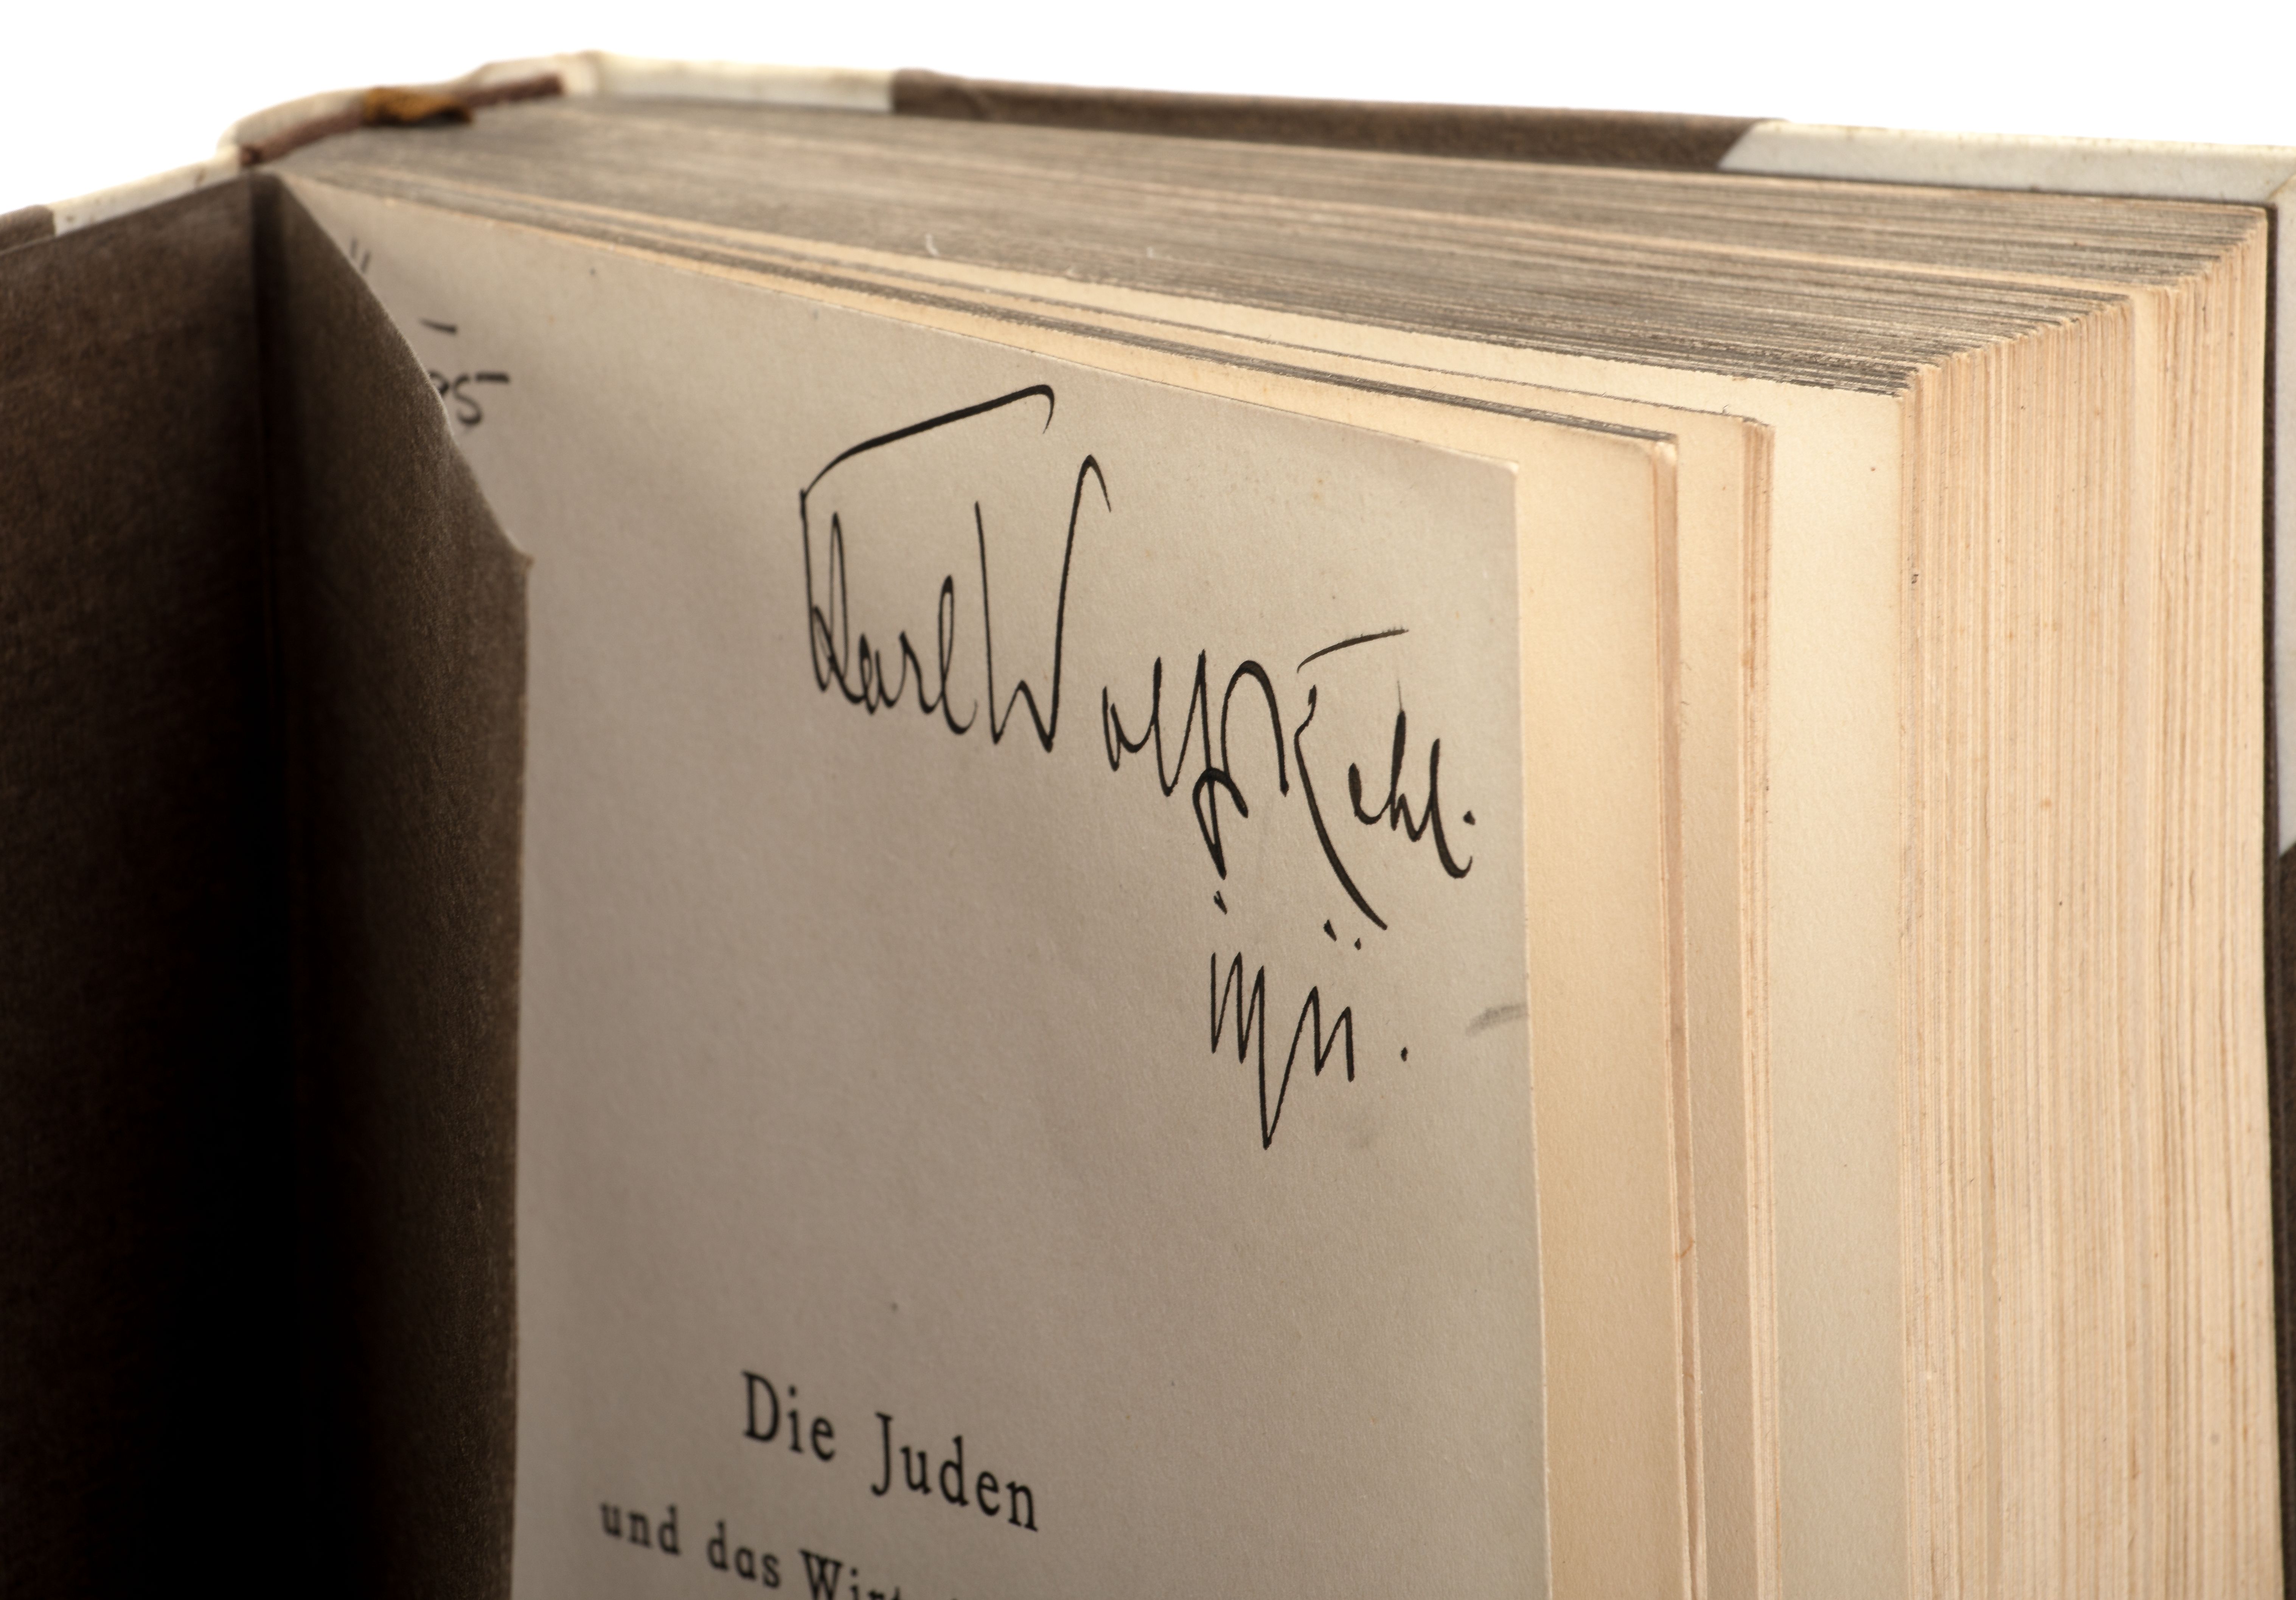 Karl Wolfskehl.
Mü.
Die Juden
und das